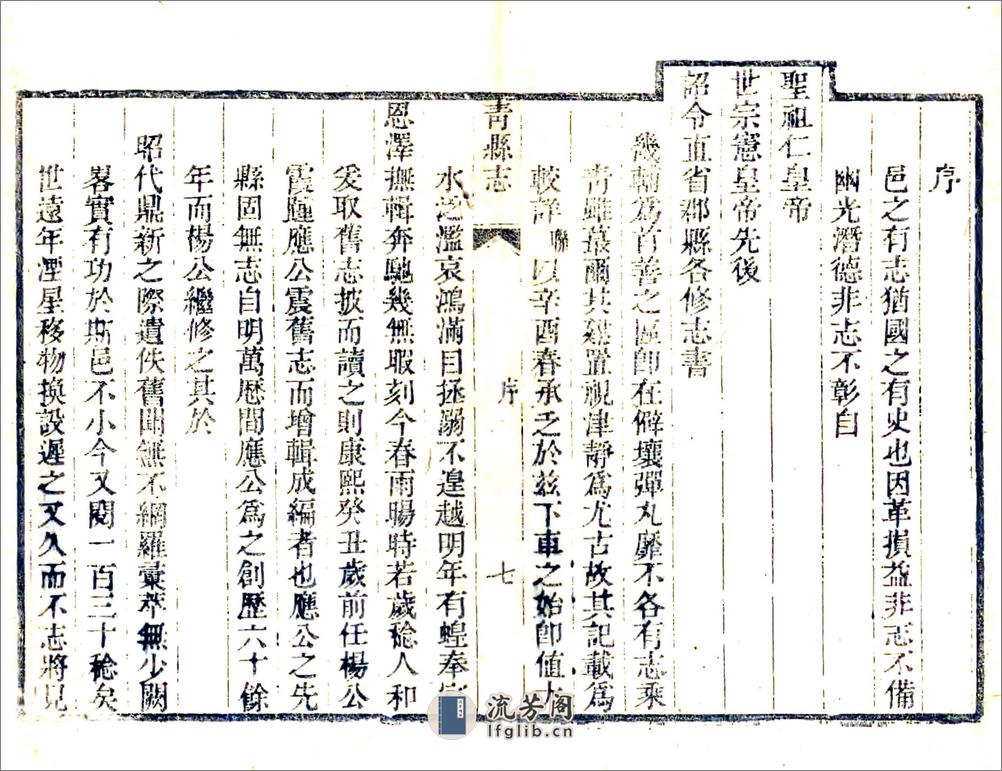 序
邑之有志猶國之有史也因革損益非志不備
幽光潛德非志不彰自
聖祖仁皇帝
世宗憲皇帝先後
詔令直省郡縣各修志書
畿輔爲首善之區卽在僻壤彈丸靡不各有志乘
青雖蕞爾其建置視津靜爲尤古故其記載爲
較詳聯以辛酉春承乏於兹下車之始卽值大
水泛濫哀鴻滿目拯溺不遑越明年有蝗奉
青縣志
序
七
恩澤撫輯奔馳幾無暇刻今春雨暘時若歲稔人和
爰取舊志披而讀之則康熙癸丑歲前任楊公
霞踵應公震舊志而增輯成編者也應公之先
縣固無志自明萬歷間應公爲之創歷六十餘
年而楊公繼修之其於
昭代鼎新之際遺佚舊聞無不網羅彙萃無少闕
畧實有功於斯邑不小今又閱一百三十稔矣
世遠年湮星移物換設遲之又久而不志將見
流芳阁
lfglib.cn